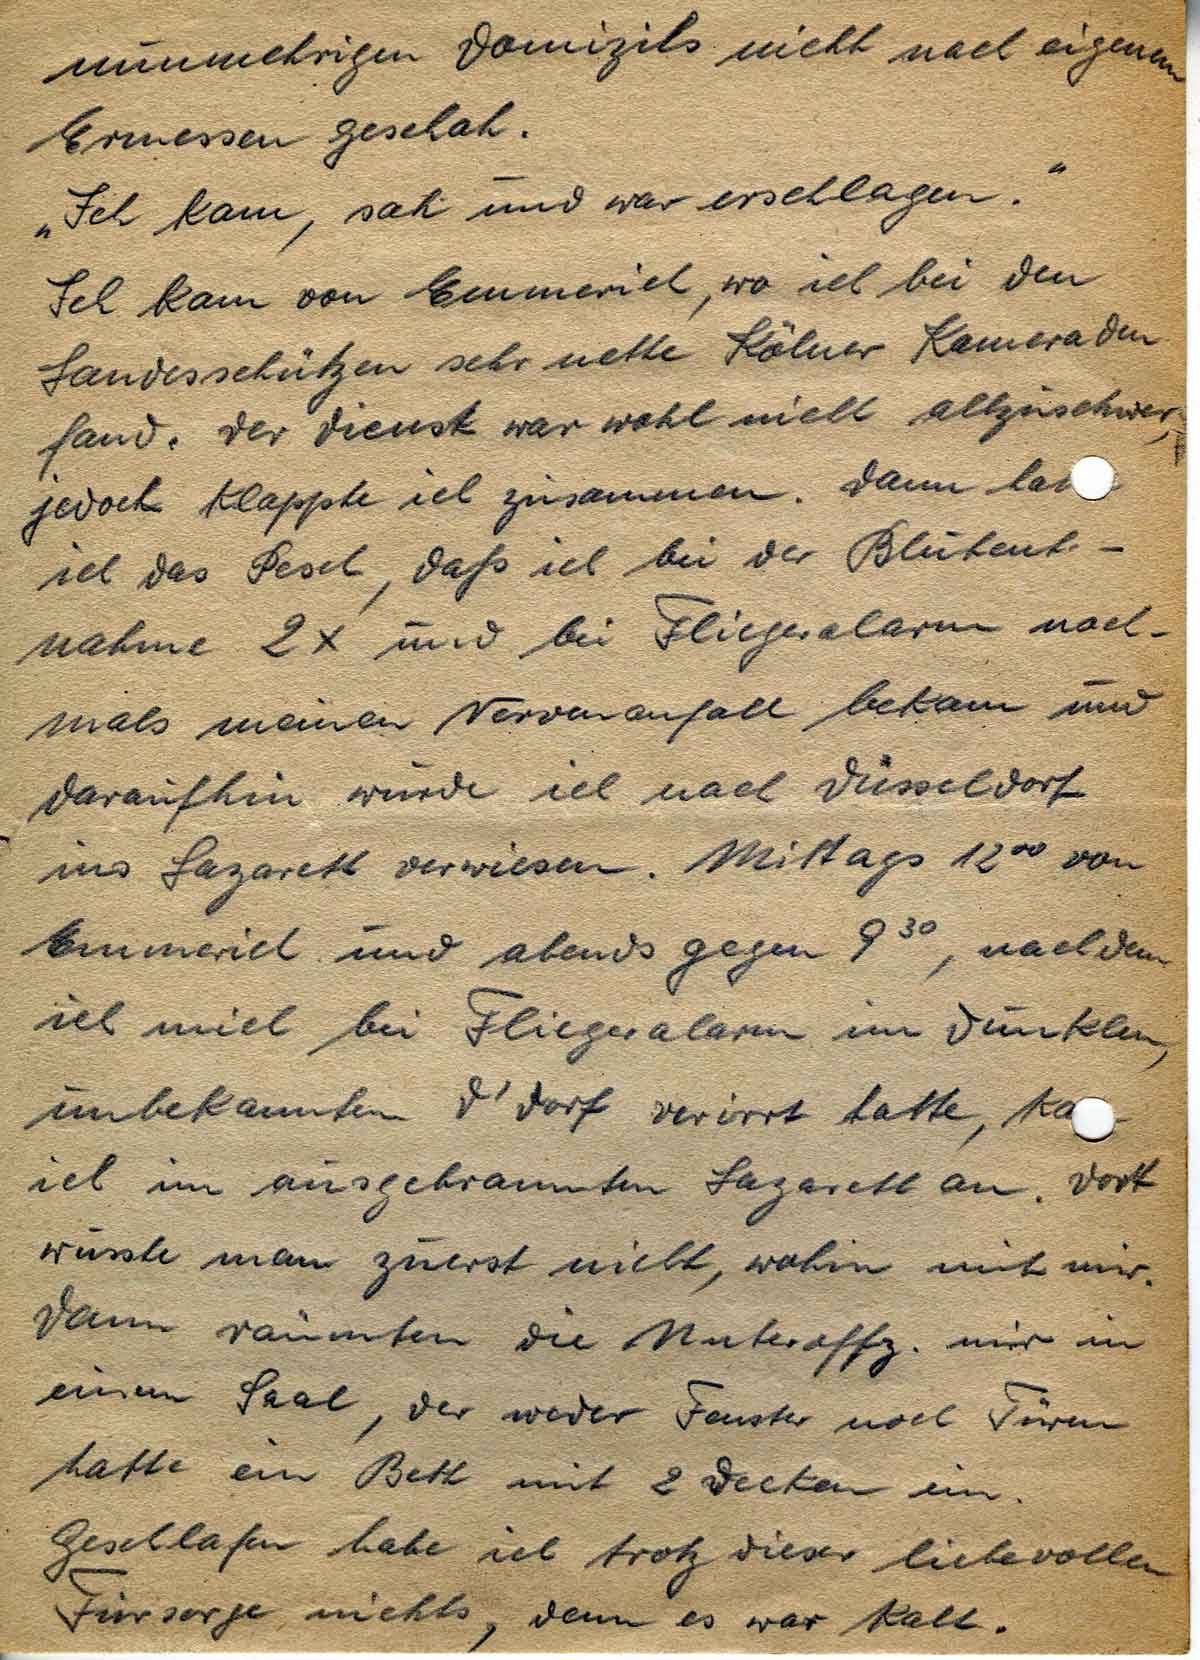 nunmehrigen Domizils nicht nach eigenem
Ermessen geschah.
„Ich kam, sah und war erschlagen."
Ich kam von Emmerich, wo ich bei den
Landesschützen sehr nette Kölner Kameraden
fand. Der Dienst war wohl nicht allzuschwer,
jedoch klappte ich zusammen. Dann hatte
ich das Pech, daß ich bei der Blutent-
nahme 2x und bei Fliegeralarm noch-
mals meinen Nervenanfall bekam und
daraufhin wurde ich nach Düsseldorf
ins Lazarett verwiesen. Mittags 12⁰⁰ von
Emmerich und abends gegen 9³⁰, nachdem
ich mich bei Fliegeralarm im dunklen,
unbekannten D'dorf verirrt hatte, kam
ich im ausgebrannten Lazarett an. Dort
wusste man zuerst nicht, wohin mit mir.
Dann räumten die Unteroffz. mir in
einem Saal, der weder Fenster noch Türen
hatte ein Bett mit 2 Decken ein.
Geschlafen habe ich trotz dieser liebevollen
Fürsorge nichts, denn es war kalt.